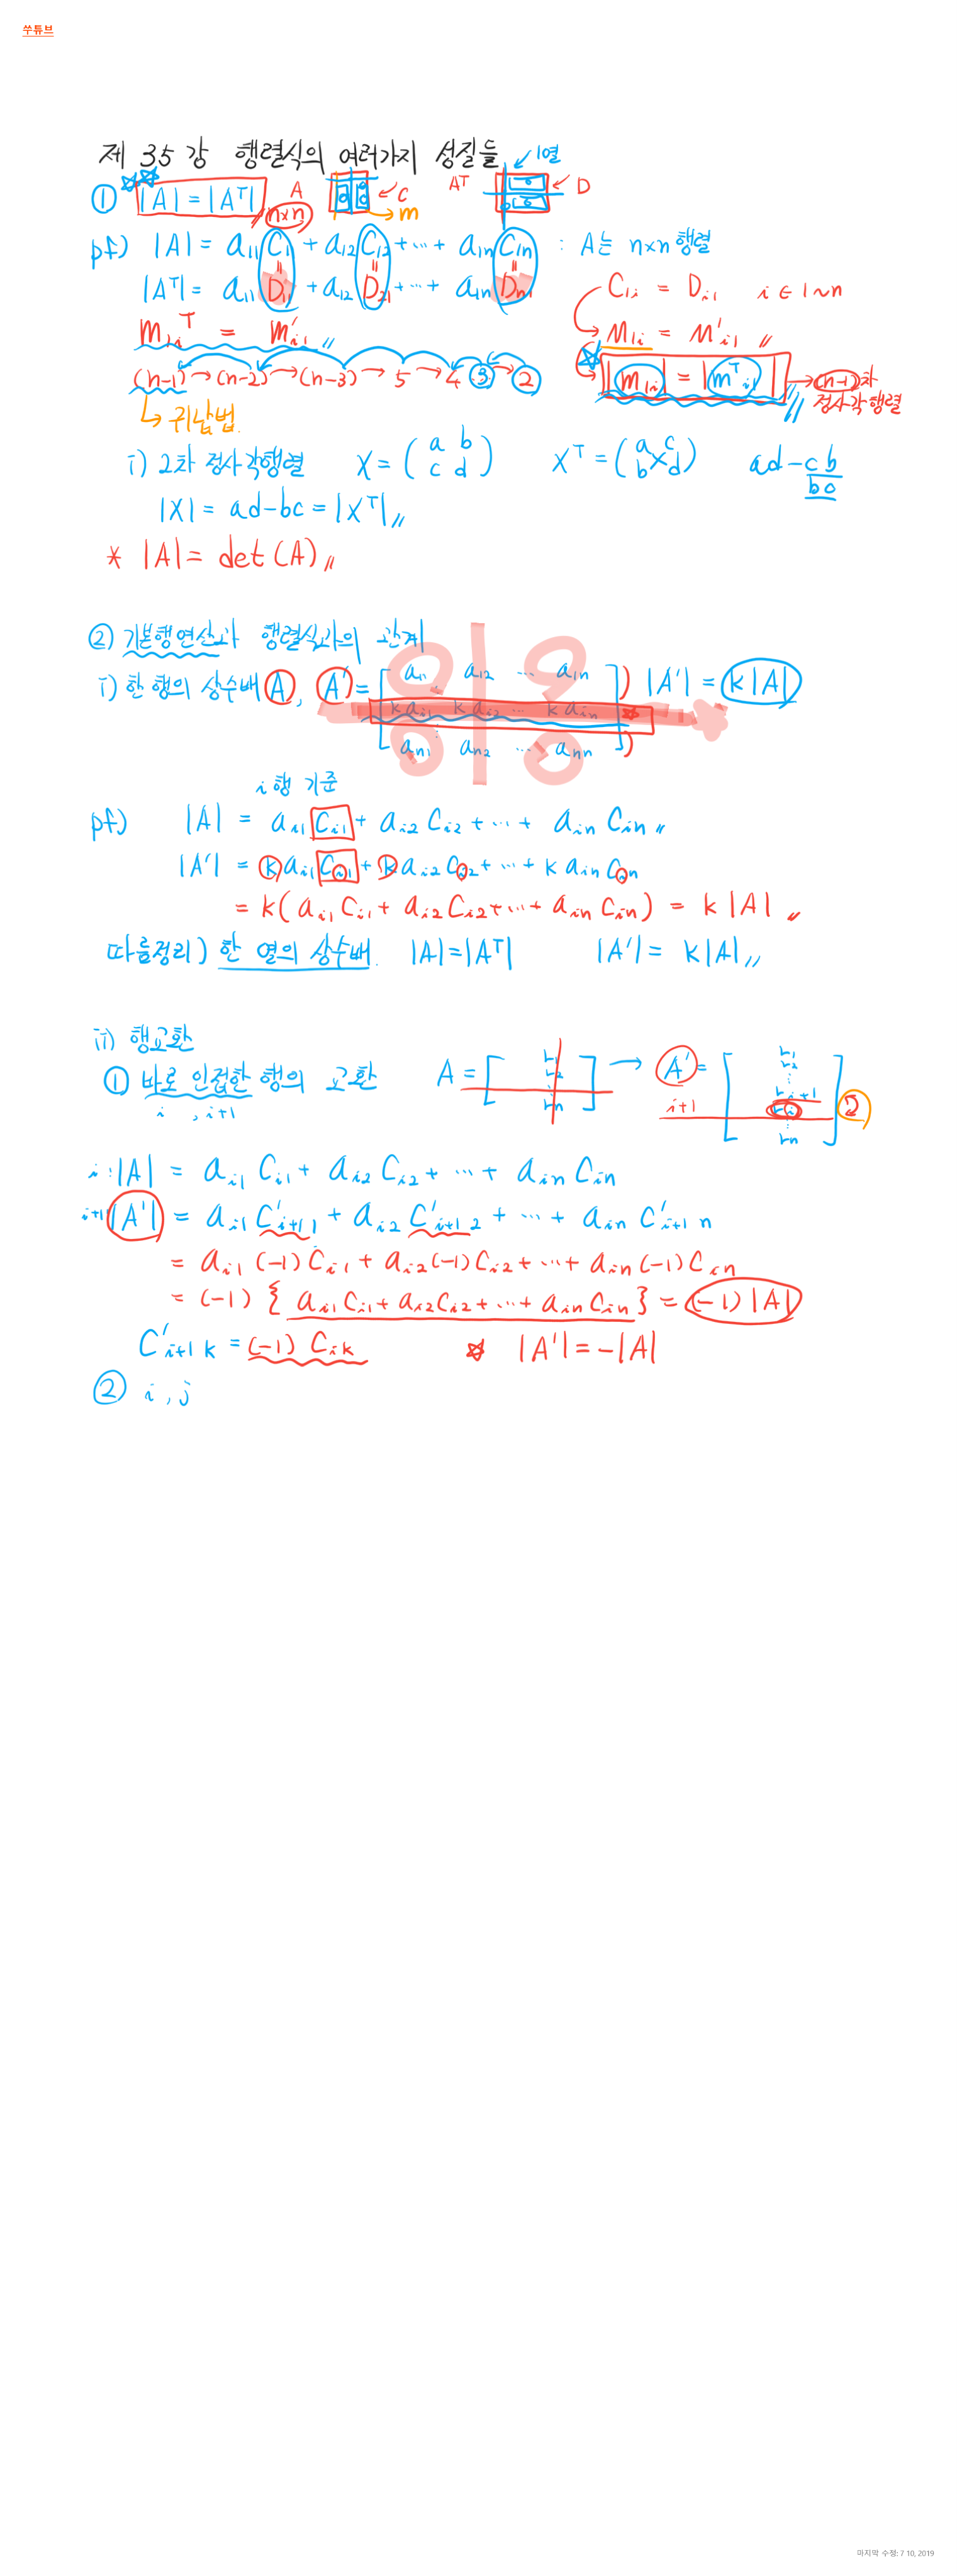 쑤튜브
제 35 강 행렬식의 여러가지 성질들
① |A| = |Aᵀ| n×n A C m Aᵀ 1열 D
pf) |A| = a₁₁C₁₁ + a₁₂C₁₂ + ⋯ + a₁ₙC₁ₙ : A는 n×n 행렬
|Aᵀ| = a₁₁D₁₁ + a₁₂D₂₁ + ⋯ + a₁ₙDₙ₁ C₁ᵢ = Dᵢ₁ i ∈ 1~n
m₁ᵢᵀ = m'ᵢ₁ m₁ᵢ = m'ᵢ₁
|m₁ᵢ| = |mᵀᵢ₁| → (n-1)차 정사각행렬
(n-1) → (n-2) → (n-3) → 5 → 4 ③ → ②
↳ 귀납법.
i) 2차 정사각행렬 X = (a b c d) Xᵀ = (a c b d) ad - cb
bc
|X| = ad-bc = |Xᵀ|
* |A| = det(A)
② 기본행연산과 행렬식과의 관계
i) 한 행의 상수배 A, A' = [a₁₁ a₁₂ ⋯ a₁ₙ
kaᵢ₁ kaᵢ₂ ⋯ kaᵢₙ
⋮
aₙ₁ aₙ₂ ⋯ aₙₙ] |A'| = k|A|
i행 기준
pf) |A| = aᵢ₁Cᵢ₁ + aᵢ₂Cᵢ₂ + ⋯ + aᵢₙCᵢₙ
|A'| = kaᵢ₁Cᵢ₁ + kaᵢ₂Cᵢ₂ + ⋯ + kaᵢₙCᵢₙ
= k(aᵢ₁Cᵢ₁ + aᵢ₂Cᵢ₂ + ⋯ + aᵢₙCᵢₙ) = k|A|
따름정리) 한 열의 상수배. |A|=|Aᵀ| |A'| = k|A|
ii) 행교환
① 바로 인접한 행의 교환 A = [r₁ r₂ ⋮ rₙ] → A' = [r₁ r₂ ⋮ rᵢ₊₁ rᵢ ⋮ rₙ]
i , i+1 i+1
i : |A| = aᵢ₁Cᵢ₁ + aᵢ₂Cᵢ₂ + ⋯ + aᵢₙCᵢₙ
i+1 |A'| = aᵢ₁C'ᵢ₊₁ ₁ + aᵢ₂C'ᵢ₊₁ ₂ + ⋯ + aᵢₙC'ᵢ₊₁ ₙ
= aᵢ₁(-1)Cᵢ₁ + aᵢ₂(-1)Cᵢ₂ + ⋯ + aᵢₙ(-1)Cᵢₙ
= (-1){aᵢ₁Cᵢ₁ + aᵢ₂Cᵢ₂ + ⋯ + aᵢₙCᵢₙ} = (-1)|A|
C'ᵢ₊₁ ₖ = (-1)Cᵢₖ ☆ |A'| = -|A|
② i , j
마지막 수정: 7 10, 2019